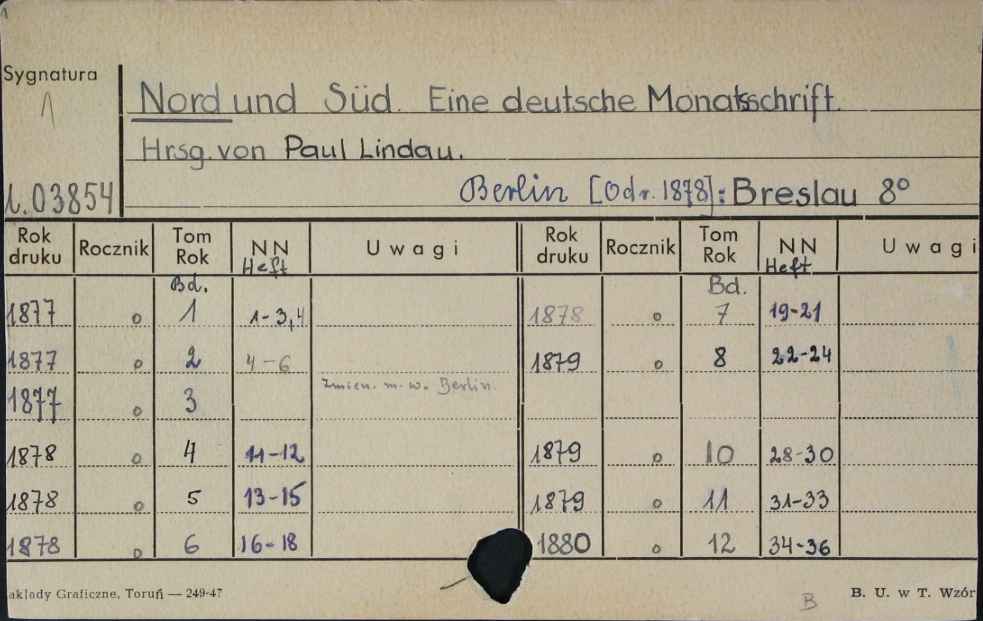 Sygnatura
Nord und Süd. Eine deutsche Monatsschrift.
Hrsg. von Paul Lindau.
Ł.03854
Berlin [Od r. 1878]: Breslau 8°
Rok druku Rocznik Tom Rok NN Heft Uwagi Rok druku Rocznik Tom Rok NN Heft Uwagi
Bd. Bd.
1877 o 1 1-3,4 1878 o 7 19-21
1877 o 2 4-6 1879 o 8 22-24
zmien. m. w. Berlin
1877 o 3
1878 o 4 11-12 1879 o 10 28-30
1878 o 5 13-15 1879 o 11 31-33
1878 o 6 16-18 1880 o 12 34-36
akłady Graficzne, Toruń — 249-47
B
B. U. w T. Wzór